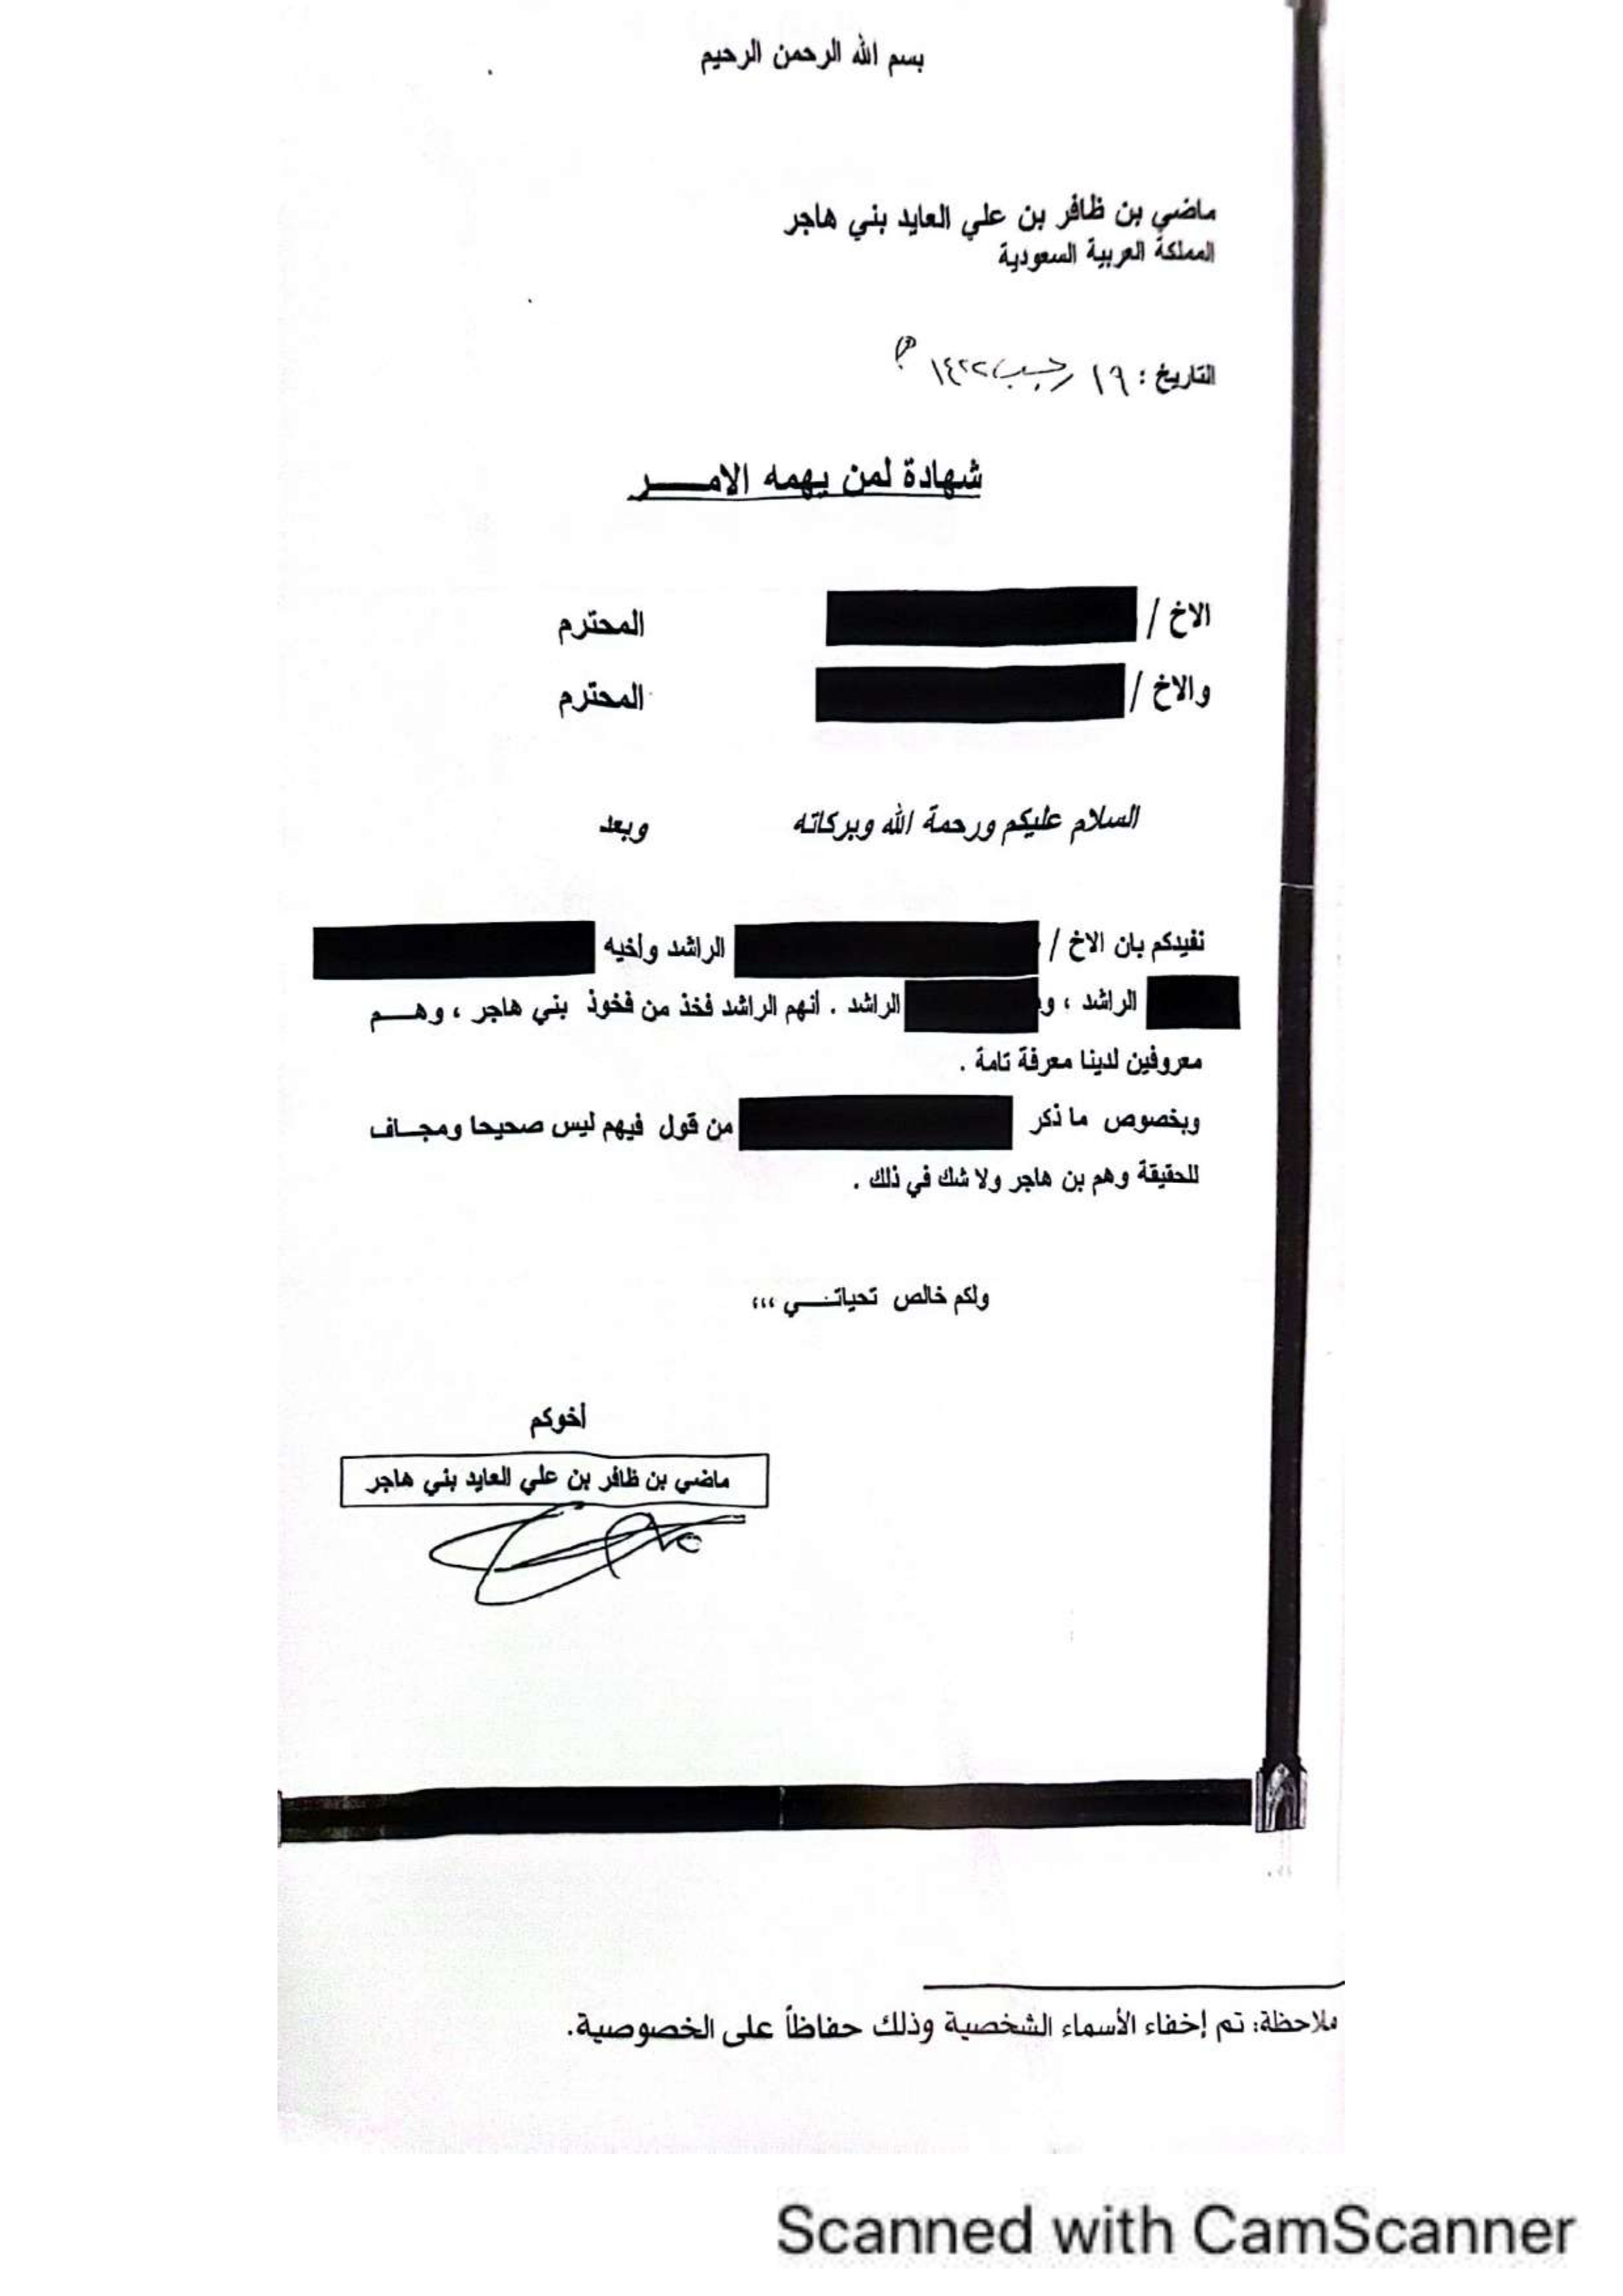 بسم الله الرحمن الرحيم
ماضي بن ظافر بن علي العايد بني هاجر
المملكة العربية السعودية
التاريخ : ١٩ رجب ١٤٢٢ هـ
شهادة لمن يهمه الامـــــر
الاخ / المحترم
والاخ / المحترم
السلام عليكم ورحمة الله وبركاته وبعد
نفيدكم بان الاخ / الراشد وأخيه
الراشد ، و الراشد . أنهم الراشد فخذ من فخوذ بني هاجر ، وهـــم
معروفين لدينا معرفة تامة .
وبخصوص ما ذكر من قول فيهم ليس صحيحا ومجــاف
للحقيقة وهم بن هاجر ولا شك في ذلك .
ولكم خالص تحياتـــي ،،،
أخوكم
ماضي بن ظافر بن علي العايد بني هاجر
ملاحظة: تم إخفاء الأسماء الشخصية وذلك حفاظاً على الخصوصية.
Scanned with CamScanner